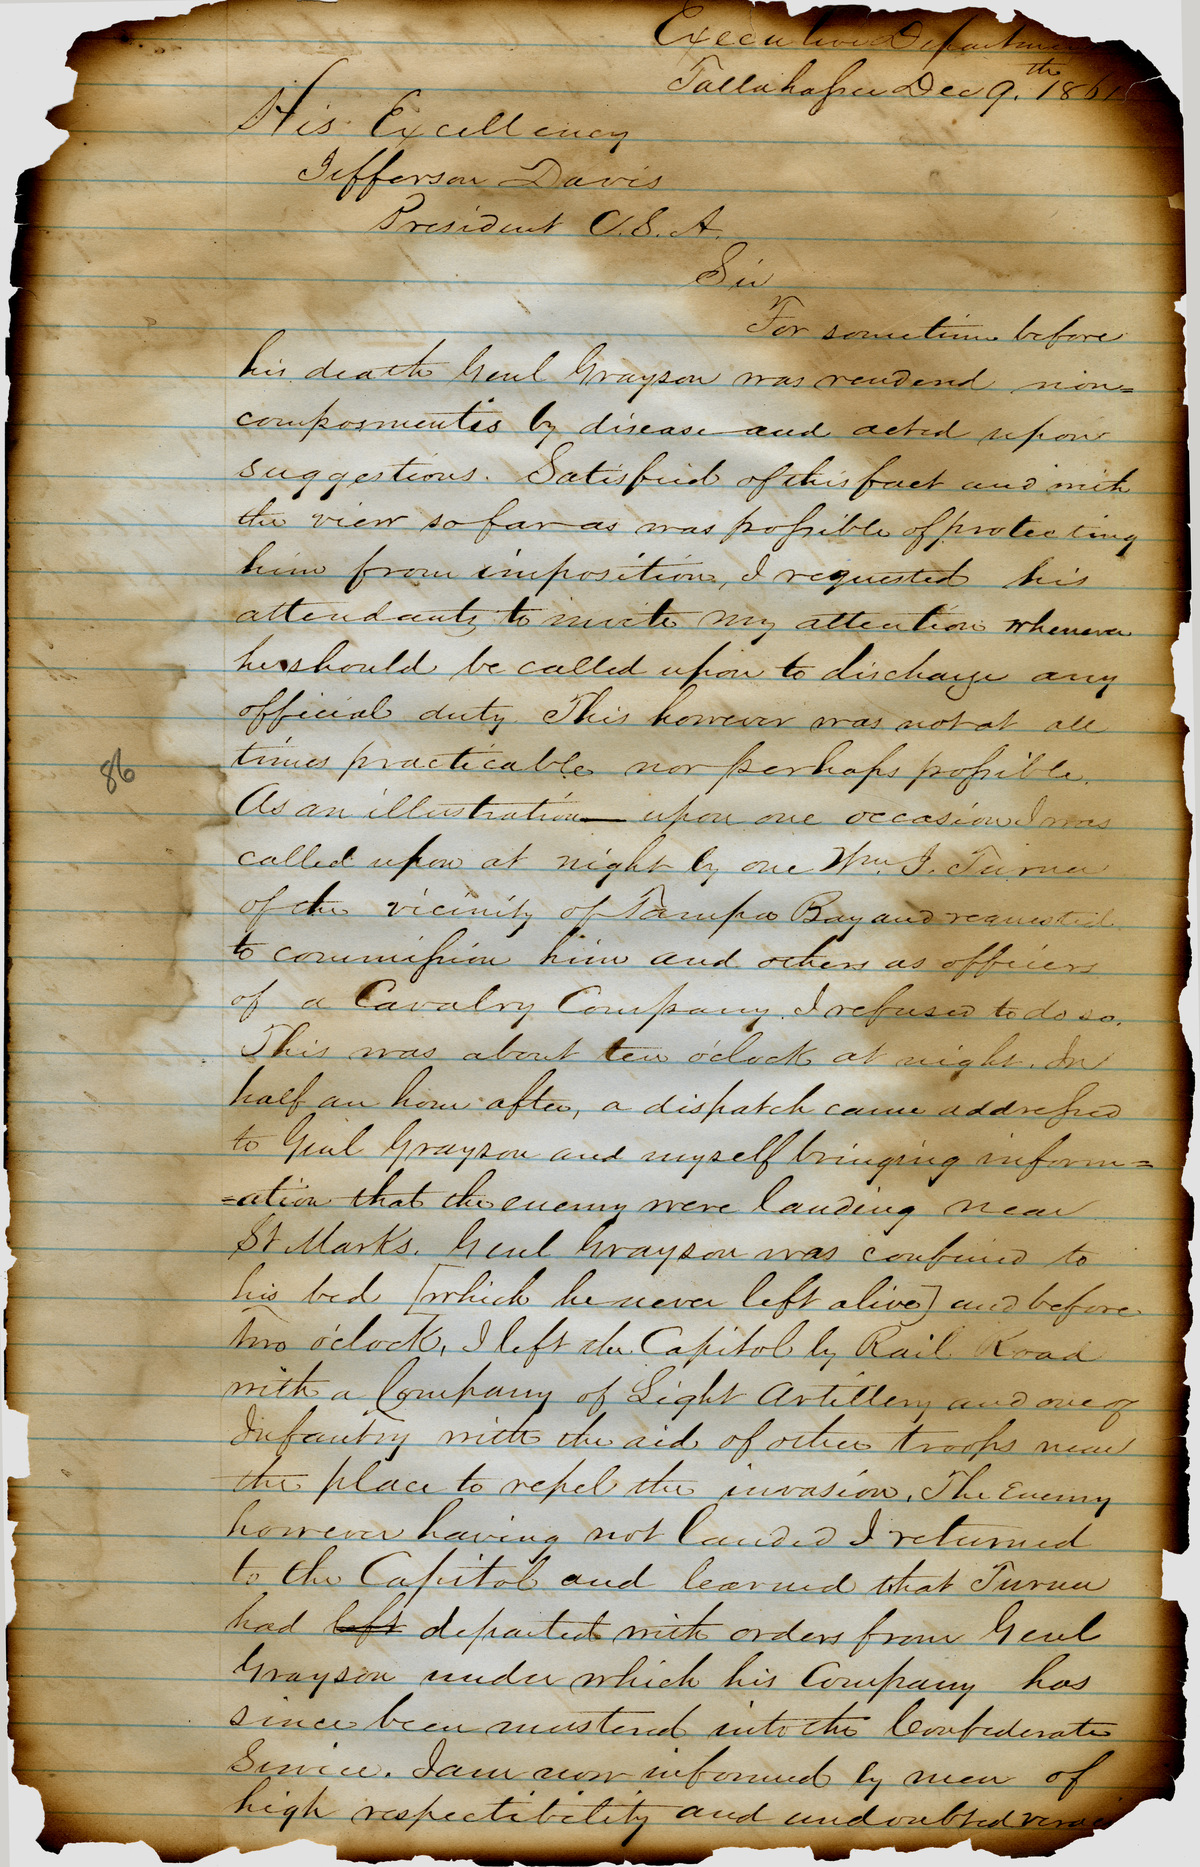 Executive Departmen
Tallahassee Dec 9.th 1861
His Excellency
Jefferson Davis
President C.S.A.
Sir
For sometime before
his death Genl Grayson was rendered non=
composmentis by disease and acted upon
suggestions. Satisfied of this fact and with
the view so far as was possible of protecting
him from imposition, I requested his
attendants to invite my attention whenever
he should be called upon to discharge any
official duty This however was not at all
times practicable nor perhaps possible.
As an illustration — upon one occasion I was
called upon at night by one Wm. J. Turner
of the vicinity of Tampa Bay and requested
to commission him and others as officers
of a Cavalry Company. I refused to do so.
This was about ten o'clock at night. In
half an hour after, a dispatch came addressed
to Genl Grayson and myself bringing inform=
=ation that the enemy were landing near
St Marks. Genl Grayson was confined to
his bed [which he never left alive] and before
Two o'clock, I left the Capitol by Rail Road
with a Company of Light Artillery and one of
Infantry with the aid of other troops near
the place to repel the invasion. The Enemy
however having not landed I returned
to the Capitol and learned that Turner
had left departed with orders from Genl
Grayson under which his Company has
since been mustered into the Confederate
Service. I am now informed by men of
high respectibility and undoubted verac
86